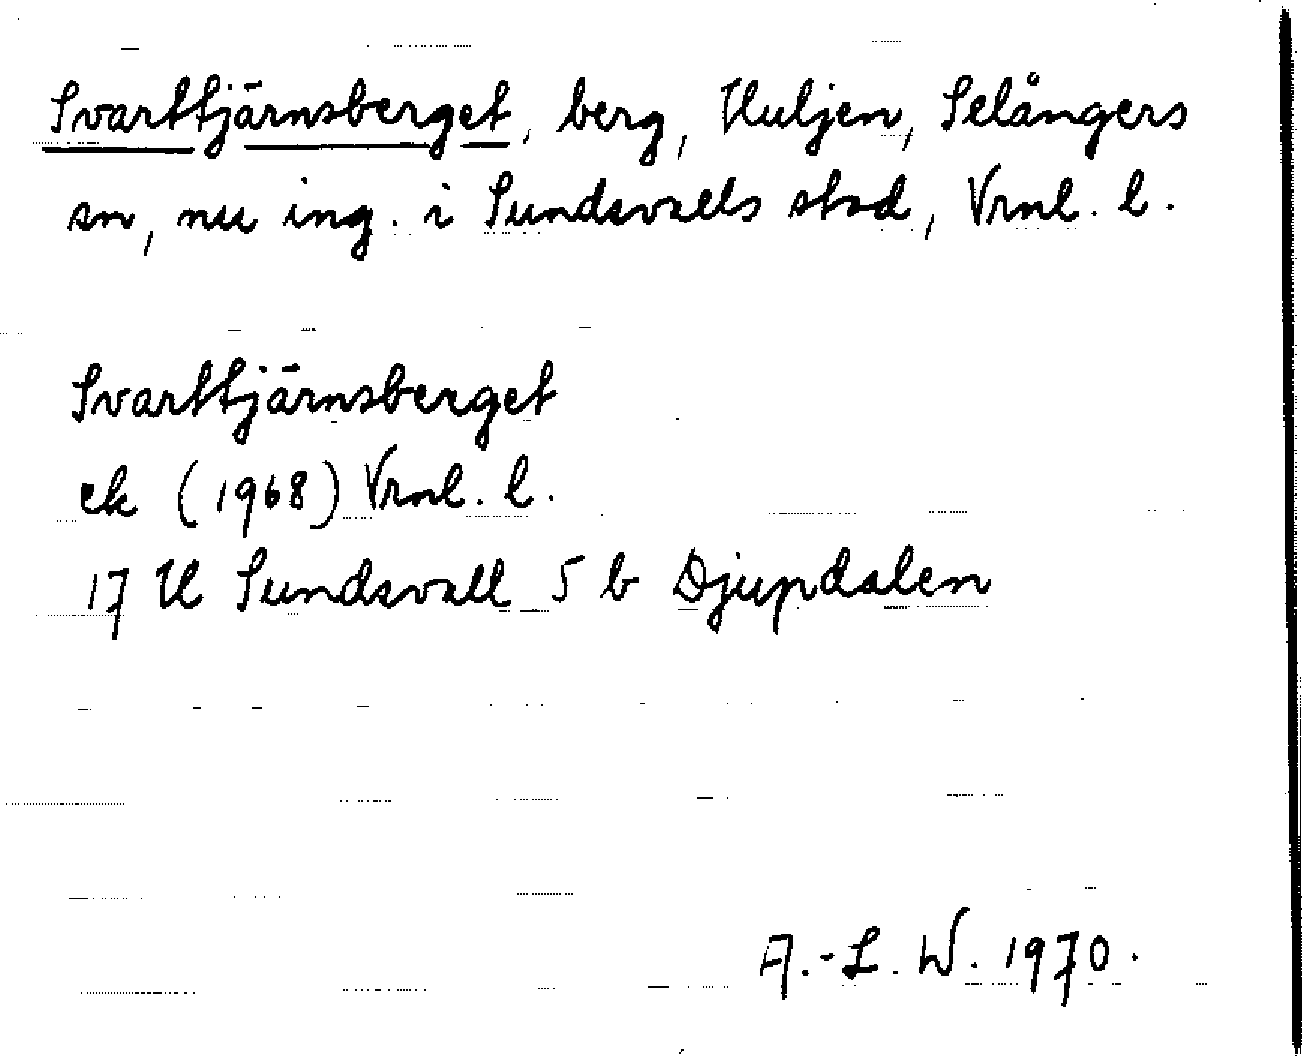 Svarttjärnsberget, berg, Huljen, Selångers
sn, nu ing. i Sundsvalls stad, Vrnl. l.
Svarttjärnsberget
ek (1968) Vrnl. l.
17 H Sundsvall 5 b Djupdalen
A.-L. W. 1970.